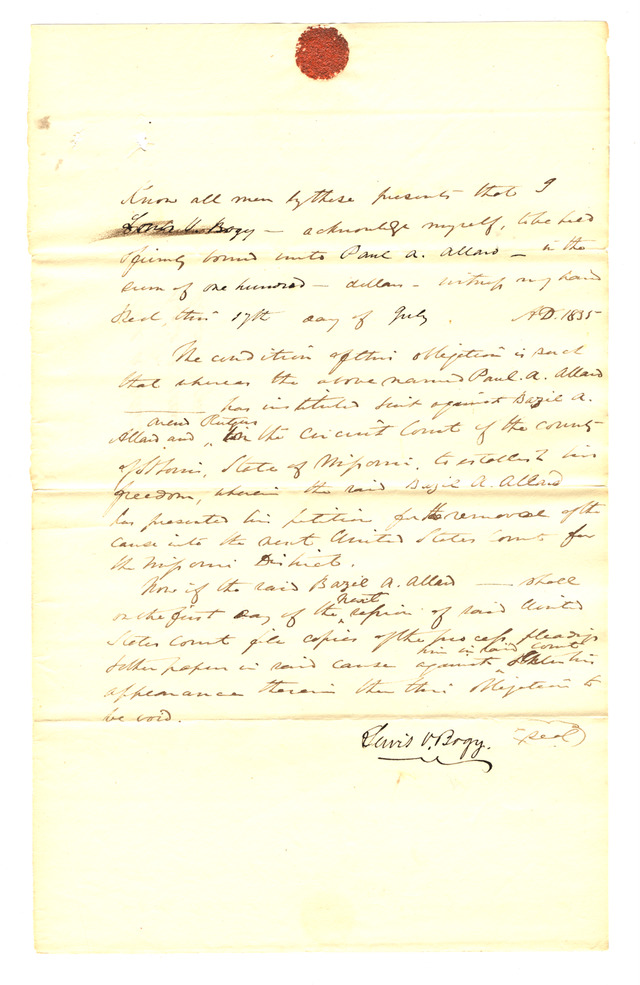 Know all men by these presents that I
Lewis V. Bogy — acknowledge myself, to be held
& firmly bound unto Paul A. Allard — in the
sum of one hundred — dollars — witness my hand
& seal, this 17th day of July. A.D. 1835
The condition of this obligation is such
that whereas the above named Paul. A. Allard
— has instituted suit against Bazil A.
Allard and
in the circuit Court of the county
of St Louis, State of Missouri, to establish his
freedom, wherein the said Bazil A. Allard
has presented his petition for the removal of the
cause into the next United States Court for
the Missouri District.
Now if the said Bazil A. Allard — shall
on the first day of the next session of said United
States Court file copies of the process, pleadings
& other papers in said cause against him in said court
& enter his
appearance therein then this obligation to
be void.
Lewis V. Bogy. (seal)